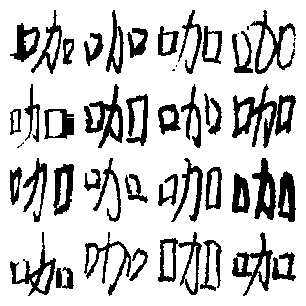 咖咖咖咖
咖咖咖咖
咖咖咖咖
咖咖咖咖